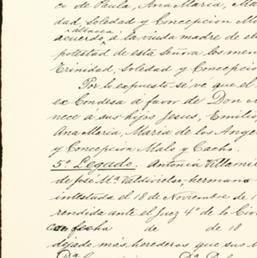 co de Paula, Ana Maria, Ma
dad, Soledad y Concepcion Ma
acuerdo á la viuda madre de el
potestad de esta Señora los men
Trinidad, Soledad y Concepcion
Por lo expuesto se vé que el
ex Condesa a favor de Don
nece a sus hijos Jesus, Emilio,
Ana Maria, Maria de los Ange
y Concepcion Malo y
5º Legado. Antonia Villami
de José Mª Valdivielso, hermana
intestada el 18 de Noviembre de 1
rendido ante el Juez 4º de lo Civ
con fecha de de 18
dejado mas herederos que sus